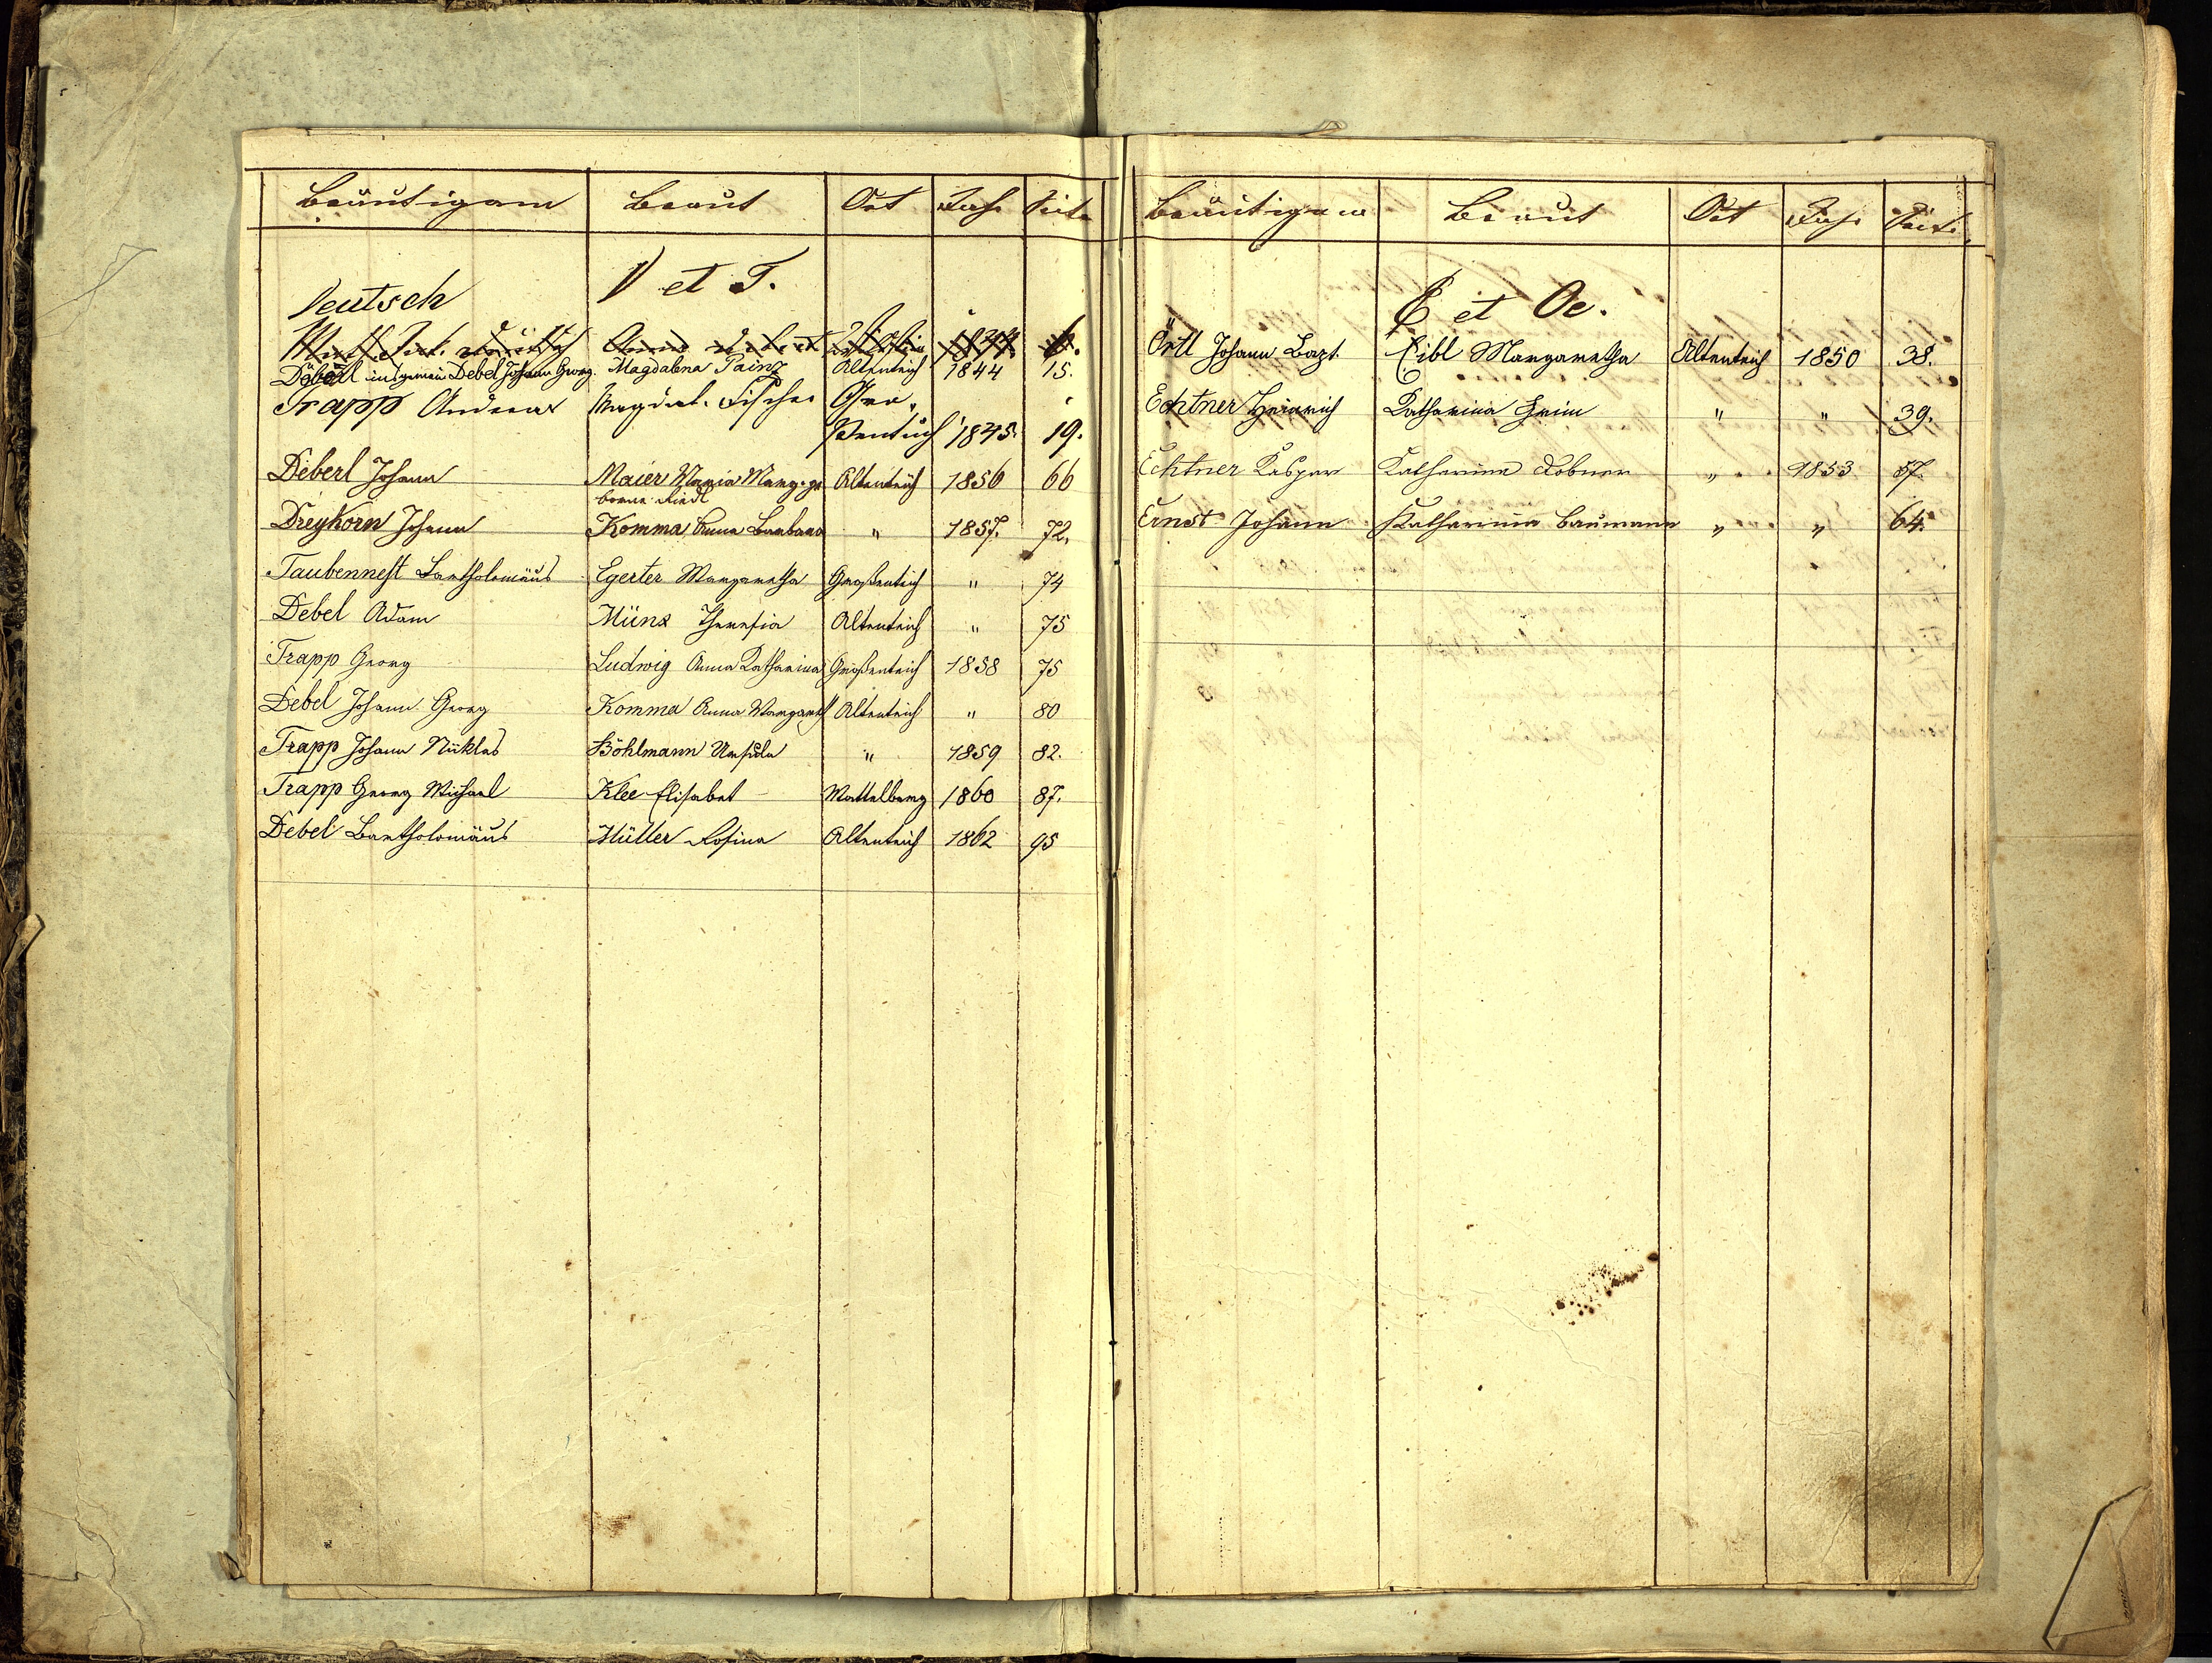 Bräutigam Braut Ort Jahr Seite
Deutsch D et T.
Anna 1844 6.
Döberl insgemein Debel Johann Georg. Magdalena Painz Altenteich 1844 15.
Trapp Andreas Magdal. Fischer Gro
ßenteich 1845. 19.
Deberl Johann Maier Maria Marg. ge Altenteich 1856 66
borne Riedl
Dreykorn Johann Komma Anna Barbara " 1857. 72.
Taubennest Bartholomäus Egerter Margaretha Großenteich " 74
Debel Adam Münz Theresia Altenteich " 75
Trapp Georg Ludwig Anna Katharina Großenteich 1858 75
Debel Johann Georg Komma Anna Margareth Altenteich " 80
Trapp Johann Niklas Böhlmann Ursula " 1859 82.
Trapp Georg Michael Klee Elisabet Mattelberg 1860 87.
Debel Bartholomäus Müller Rosina Altenteich 1862 95
Bräutigam Braut Ort Jahr Seite
E et Oe.
Örtl Johann Bapt. Eibl Margaretha Altenteich 1850 38.
Echtner Heinrich Katharina Heim " " 39.
Echtner Kaspar Katharina Lobner " 1853 57.
Ernst Johann Katharina Baumann " " 64.